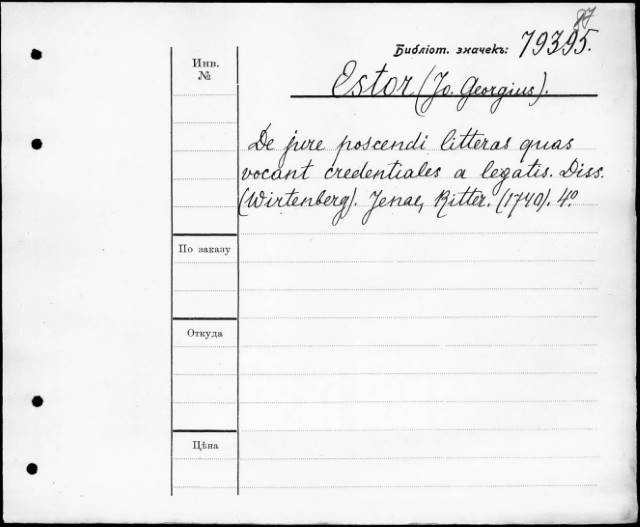 87
Библіот. значекъ: 79395.
Инв.
№
Estor (Jo. Georgius).
De jure poscendi litteras quas
vocant credentiales a legatis. Diss.
(Wirtenberg). Jenae, Ritter. (1740). 4º
По заказу
Откуда
Цѣна